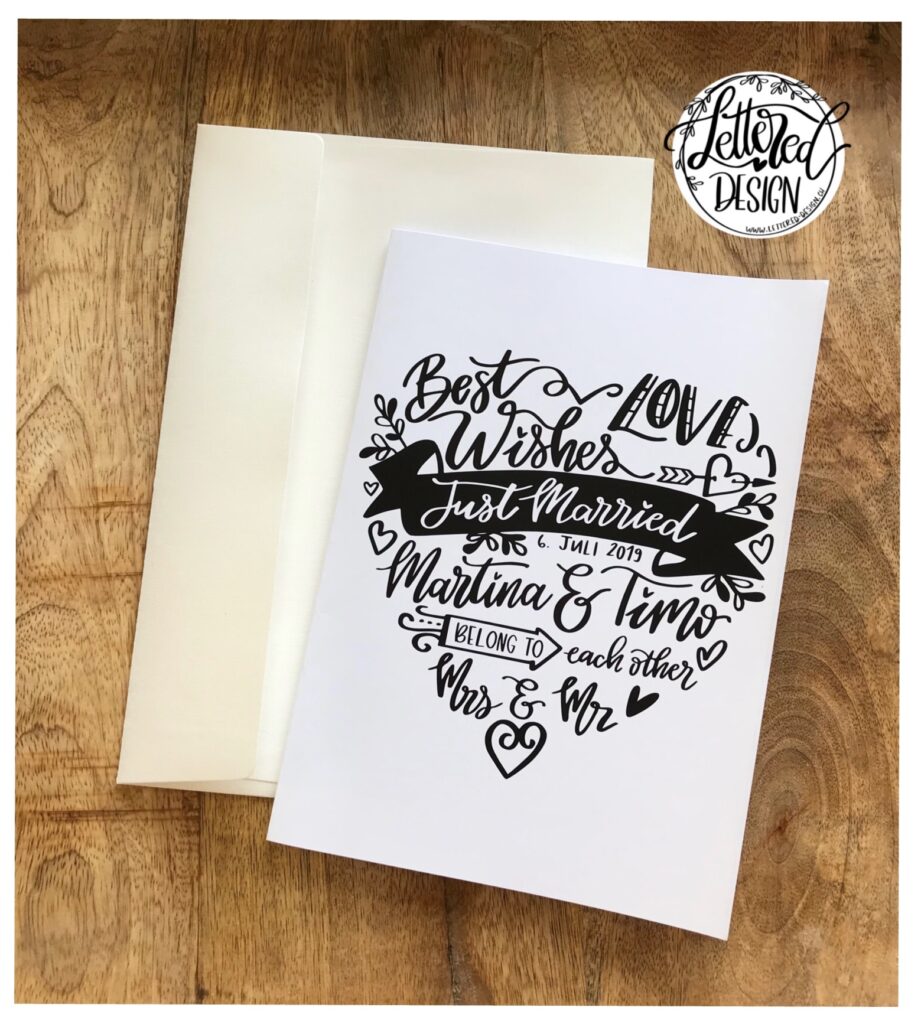 Lettered
DESIGN
WWW.LETTERED-DESIGN.CH
Best
LOVE
Wishes
Just Married
6. JULI 2019
Martina & Timo
BELONG TO
each other
Mrs & Mr